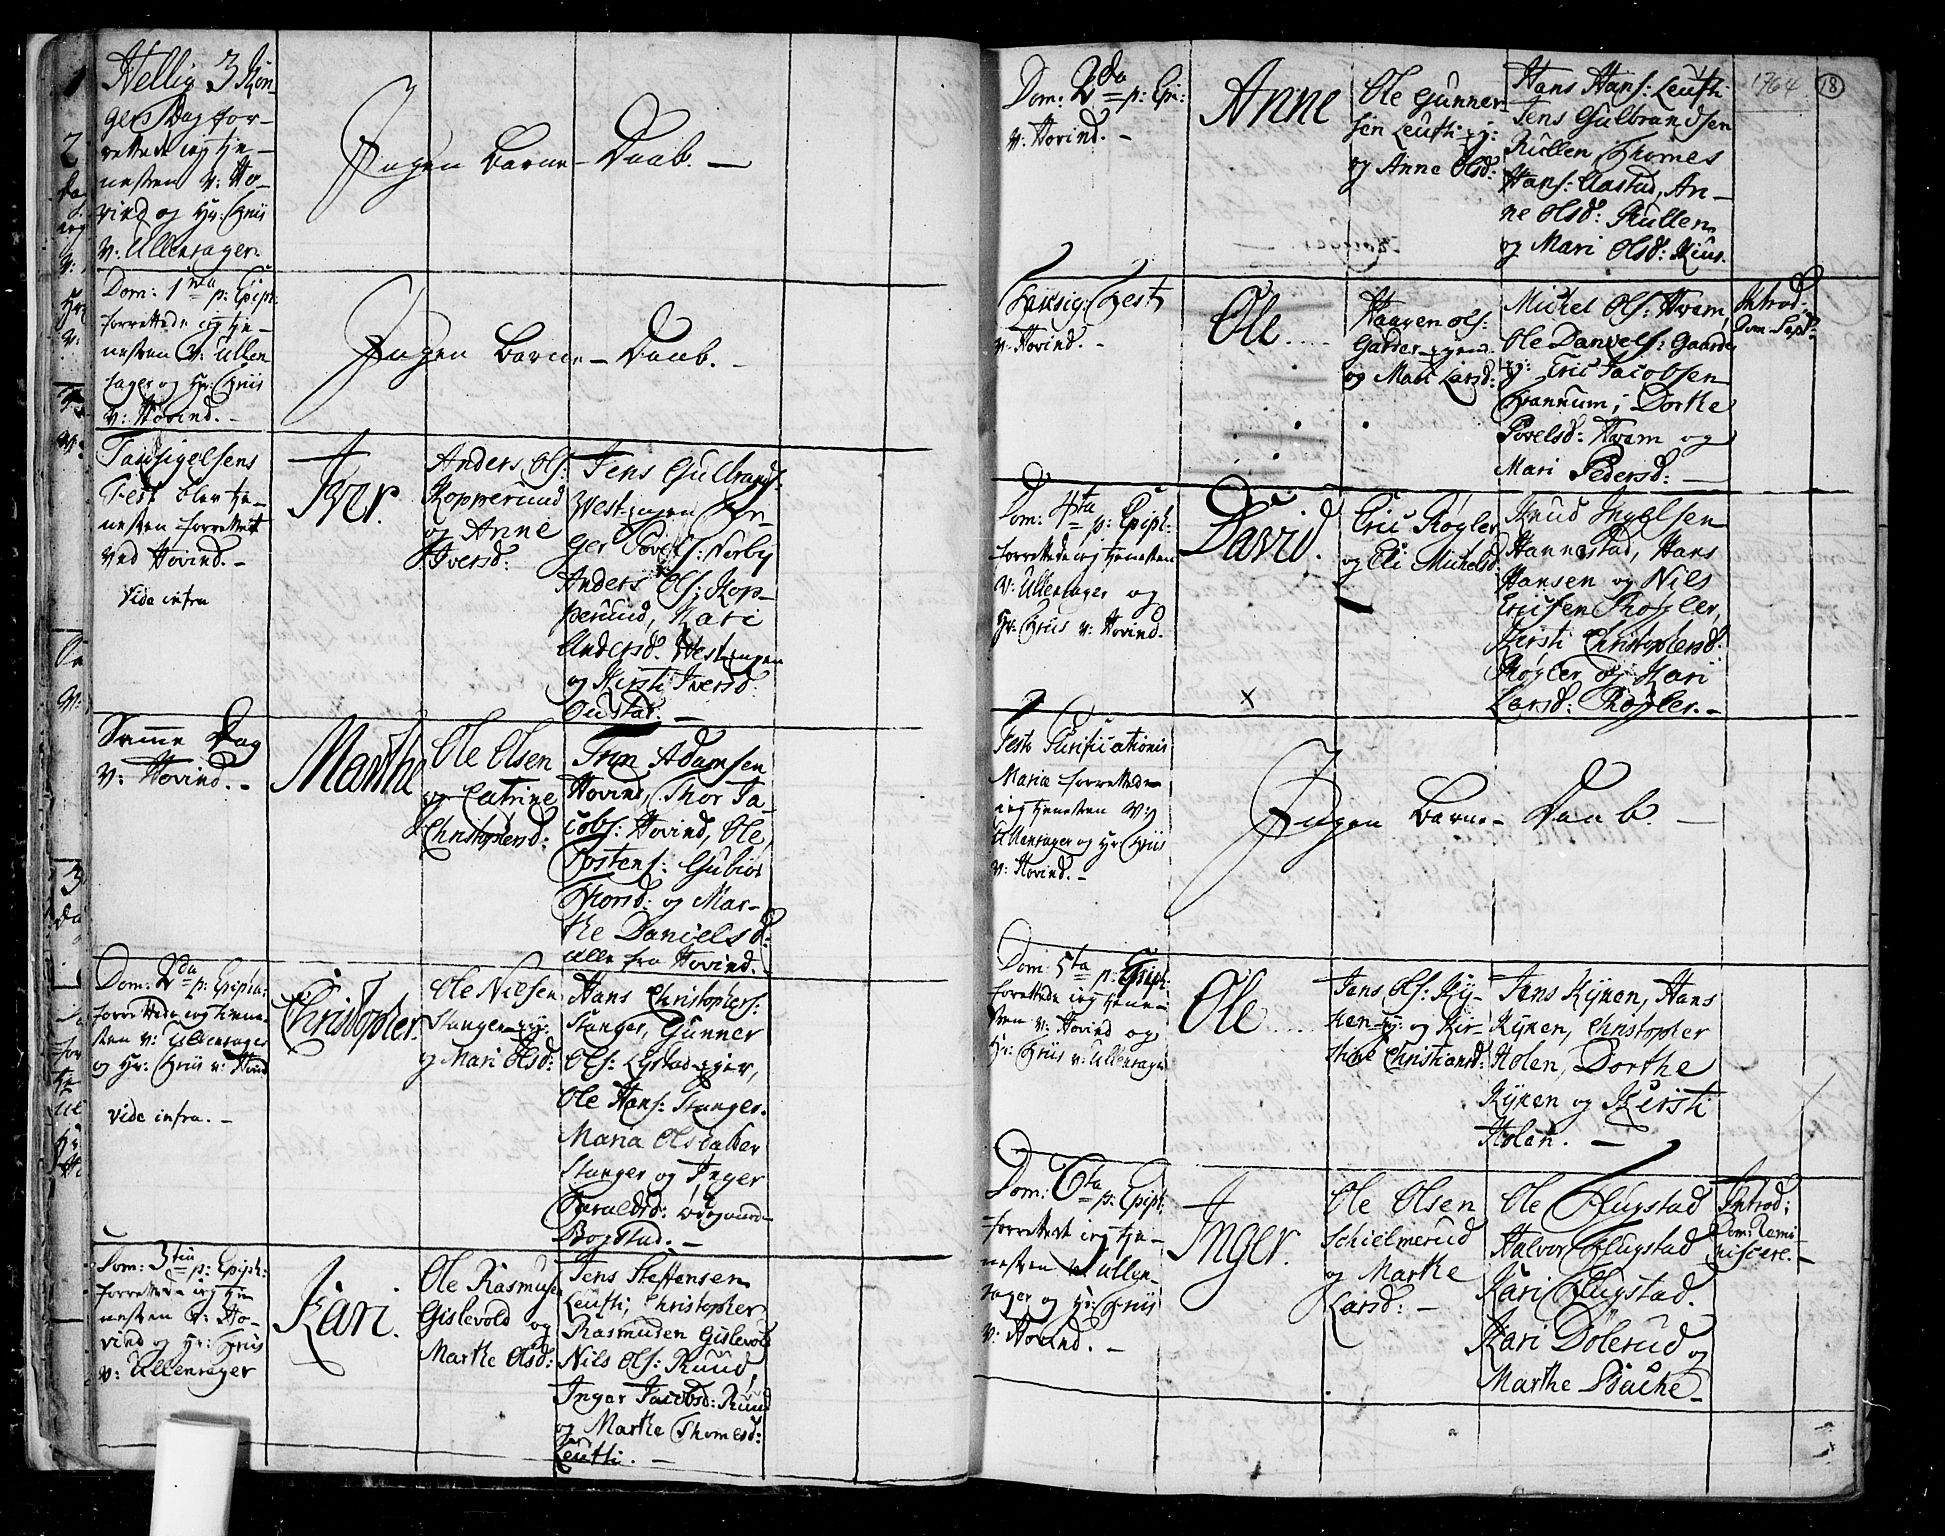 Hellig 3 Kon-
gers Dag for-
rettede ieg tie-
nesten v: Ho-
vind og Hr: Friis
v: Ullensager.
Ingen Barne-Daab. —
Dom: 1ma p: Epiph:
forrettede ieg tie-
nesten v: Ullen
sager og Hr: Friis
v: Hovind. —
Ingen Barne-Daab.
Fest blev tie-
nesten forrettet
ved Hovind. —
Vide infra
Iver.
Anders Ols:
Kopperuud
og Anne
Iversd:
Jens Gulbrands:
Westengen
Povels: Norby
Anders Ols: Kop-
peruud, Kari
Andersd. Westengen
og Kirsti Iversd:
Samme Dag
v: Hovind. —
Marthe
Ole Olsen
og Catrine
Christophersd:
Adamsen
Hovind, Thor Ja-
cobs: Hovind, Ole
Tostens:
Thorsd: og Mar-
the Danielsd:
alle fra Hovind.
Dom: 2da p: Epipha:
forrettede ieg tiene-
sten v: Ullensager
og Hr: Friis v: Hovind
vide infra. —
Christopher.
Ole Nilsen
Stanger
og Mari Olsd:
Hans Christophers:
Stanger, Gunner
Ols:
Ole Hans: Stanger.
Maria Olsdatter
Stanger og Inger
Haraldsd: Ødegaard
Bogstad. —
Dom: 3tia p: Epiph:
forrettede ieg tie
nesten v: Ho-
vind og Hr: Friis
v: Ullensager
Kari.
Ole Rasmusen
Gislevold og
Marthe Olsd:
Jens Steffensen
Leufti, Christopher
Rasmusen Gislevold
Nils Ols: Ruud
Inger Jacobsd: Ruud
og Marthe Thomesd:
Leufti. —
1764
18
Dom: 2da p: Epi:
v: Hovind. —
Anne
Ole Gunner-
sen Leufti
og Anne Olsd:
Hans Hans: Leufti
Jens Gulbrandsen
Rullen Thomes
Hans: Aastad, An-
ne Olsd: Rullen
og Mari Olsd: Kius.
v. Hovind. —
Ole
Haagen Ols:
Garder
og Mari Larsd:
Michel Ols: Hvam
Ole Daniels: Gaarder
Eric Jacobsen
Dorthe
Povelsd: Hvam og
Mari Pedersd: —
Introd:
Dom: Sept:
Dom: 4ta p: Epiph:
forrettede ieg tienesten
v: Ullensager og
Hr: Friis v: Hovind.
David.
Eric Røgler
og Eli Michelsd
Knud Ingelsen
Hannestad, Hans
Hansen og Nils
Ericsen Røgler,
Kirsti Christophersd.
Røgler og Kari
Larsd: Røgler. —
x
Festo Purificationis
Mariæ forrettede
ieg tienesten v:
Ullensager og Hr Friis
v: Hovind. —
Ingen Barne-Daab. —
Dom: 5ta p: Epiph:
forrettede ieg tiene-
sten v: Hovind og
Hr: Friis v: Ullensager
Ole
Jens Ols: Ky-
ken og Kir-
stine Christiansd:
Jens Kyken, Hans
Kyken, Christopher
Holen, Dorthe
Kyken og Kirsti
Holen. —
Dom: 6ta p: Epiph:
forrettet ieg tie-
nesten v: Ullen-
sager og Hr: Friis
v: Hovind. —
Inger.
Ole Olsen
Schielmerud
og Marthe
Larsd: —
Ole Flugstad
Halvor Flugstad
Kari Flugstad.
Kari Dølerud og
Marthe Bache
Introd:
Dom: Remi
niscere. —